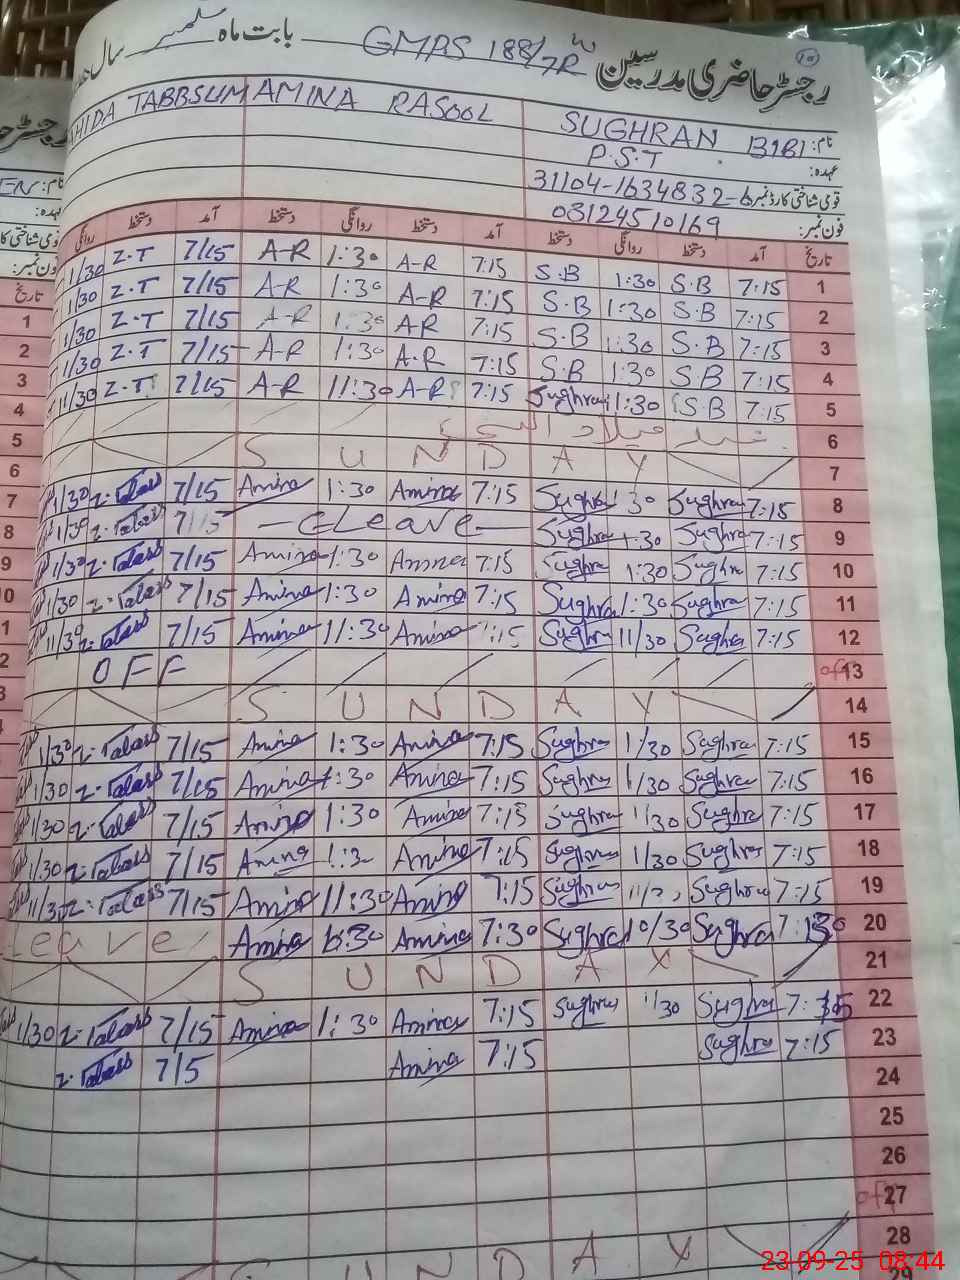 رجسٹر حاضری مدرسین GMPS 188/7R بابت ماہ ستمبر سال
نام: SUGHRAN BIBI AMINA RASOOL TABBSUM
عہدہ: P.S.T
قومی شناختی کارڈ نمبر 31104-1634832-6
فون نمبر: 03124510169
تاریخ آمد دستخط روانگی دستخط آمد دستخط روانگی دستخط آمد دستخط روانگی
1/30 Z.T 7/15 A-R 1:30 A-R 7:15 S.B 1:30 S.B 7:15 1
1/30 Z.T 7/15 A-R 1:30 A-R 7:15 S.B 1:30 S.B 7:15 2
1/30 Z.T 7/15 A-R 1:30 AR 7:15 S.B 1:30 S.B 7:15 3
1/30 Z.T 7/15 A-R 1:30 A.R 7:15 S.B 1:30 S.B 7:15 4
11/30 Z.T 7/15 A-R 11:30 A-R 7:15 Sughra 11:30 S.B 7:15 5
عید میلاد النبی 6
S U N D A Y 7
1/30 7/15 Amina 1:30 Amina 7:15 Sughra 1:30 Sughra 7:15 8
1/30 7/15 - CLeave - Sughra 1:30 Sughra 7:15 9
1/30 7/15 Amina 1:30 Amina 7:15 Sughra 1:30 Sughra 7:15 10
1/30 7/15 Amina 1:30 Amina 7:15 Sughra 1:30 Sughra 7:15 11
11/30 7/15 Amina 11:30 Amina 7:15 Sughra 11/30 Sughra 7:15 12
OFF off 13
S U N D A Y 14
1/30 7/15 Amina 1:30 Amina 7:15 Sughra 1/30 Sughra 7:15 15
1/30 7/15 Amina 1:30 Amina 7:15 Sughra 1/30 Sughra 7:15 16
1/30 7/15 Amina 1:30 Amina 7:15 Sughra 1/30 Sughra 7:15 17
1/30 7/15 Amina Amina 7:15 Sughra 1/30 Sughra 7:15 18
11/30 7/15 Amina 11:30 Amina 7:15 Sughra Sughra 7:15 19
Leave Amina Amina 7:30 Sughra 10/30 Sughra 20
S U N D A Y 21
1/30 7/15 Amina 1:30 Amina 7:15 Sughra 1/30 Sughra 22
7/15 Amina 7:15 Sughra 7:15 23
24
25
26
off 27
S U N D A Y 28
29
23-09-25 08:44